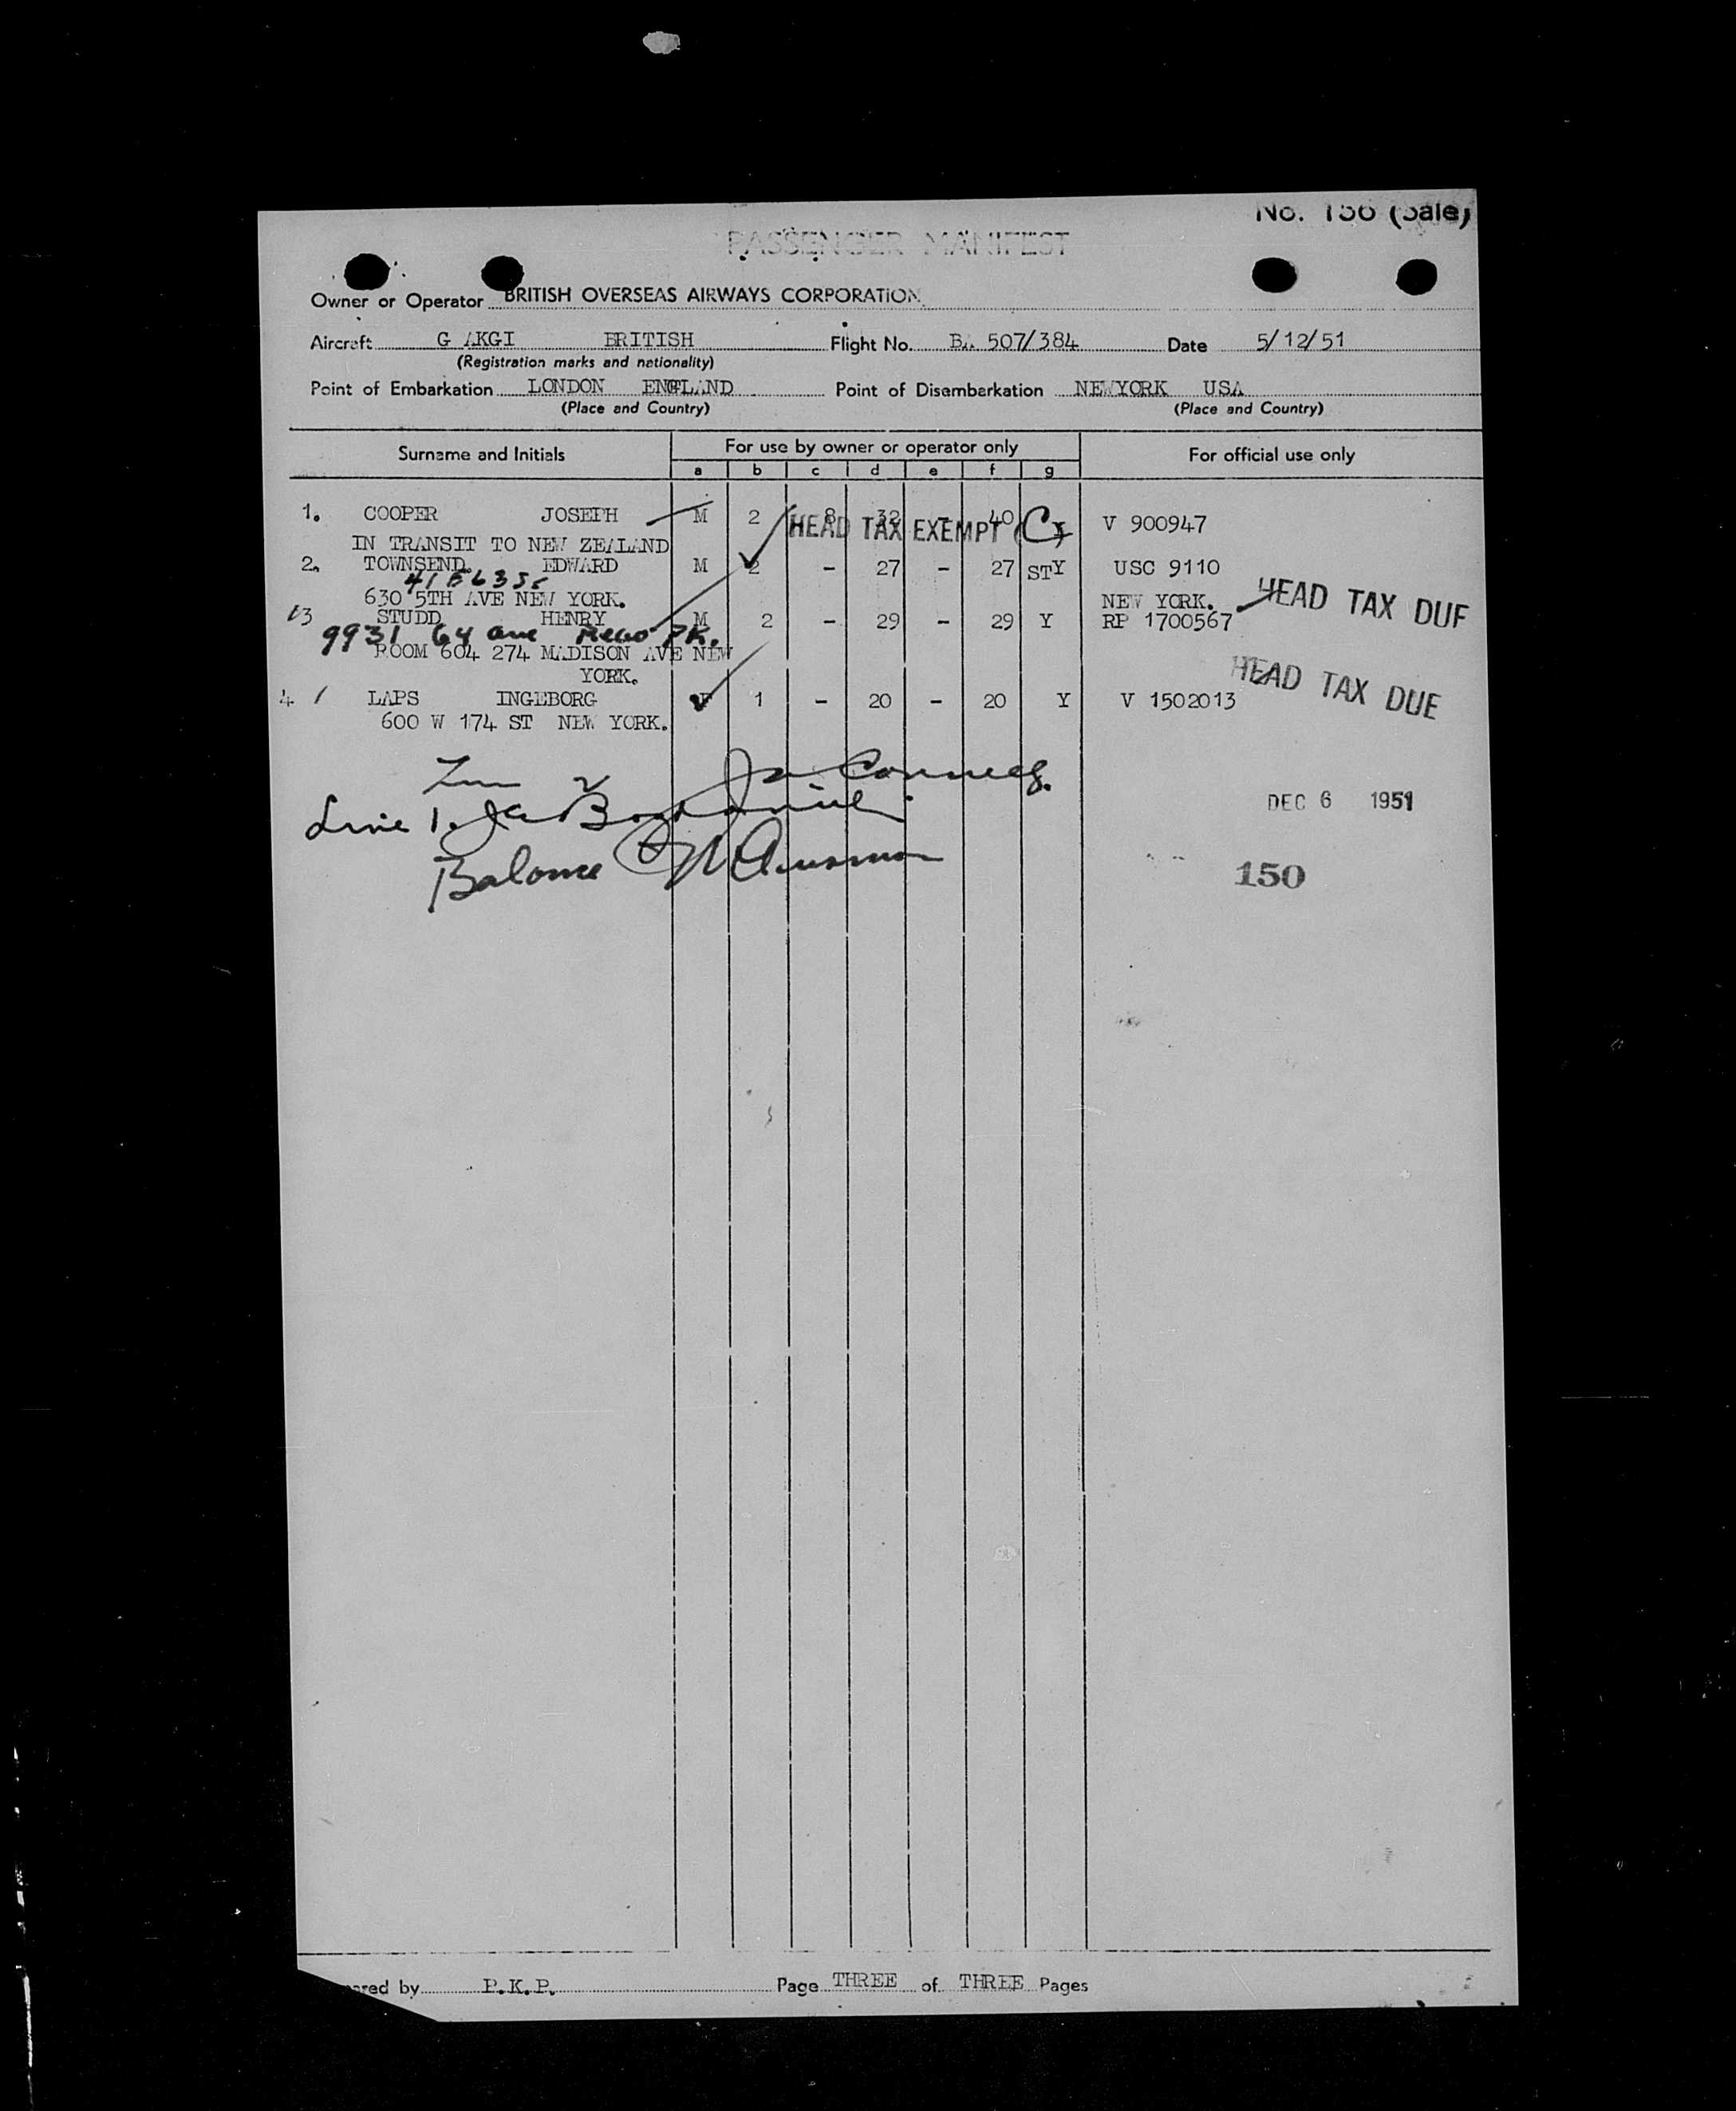 No. 156 (Sale)
PASSENGER MANIFEST
Owner or Operator BRITISH OVERSEAS AIRWAYS CORPORATION
Aircraft G AKGI BRITISH Flight No. BA 507/384 Date 5/12/51
(Registration marks and nationality)
Point of Embarkation LONDON ENGLAND Point of Disembarkation NEWYORK USA
(Place and Country) (Place and Country)
Surname and Initials For use by owner or operator only For official use only
a b c d e f g
1. COOPER JOSEPH M 2 8 32 - 40 V 900947
HEAD TAX EXEMPT
IN TRANSIT TO NEW ZEALAND
2. TOWNSEND EDWARD M 2 - 27 - 27 STY USC 9110
41 E 63 St
630 5TH AVE NEW YORK. NEW YORK. HEAD TAX DUE
3 STUDD HENRY M 2 - 29 - 29 Y RP 1700567
9931 64 ave Rego PK.
ROOM 604 274 MADISON AVE NEW
YORK. HEAD TAX DUE
4 LAPS INGEBORG F 1 - 20 - 20 Y V 1502013
600 W 174 ST NEW YORK.
Line 2
Line 1.
DEC 6 1951
Balance
150
ared by P.K.P. Page THREE of THREE Pages